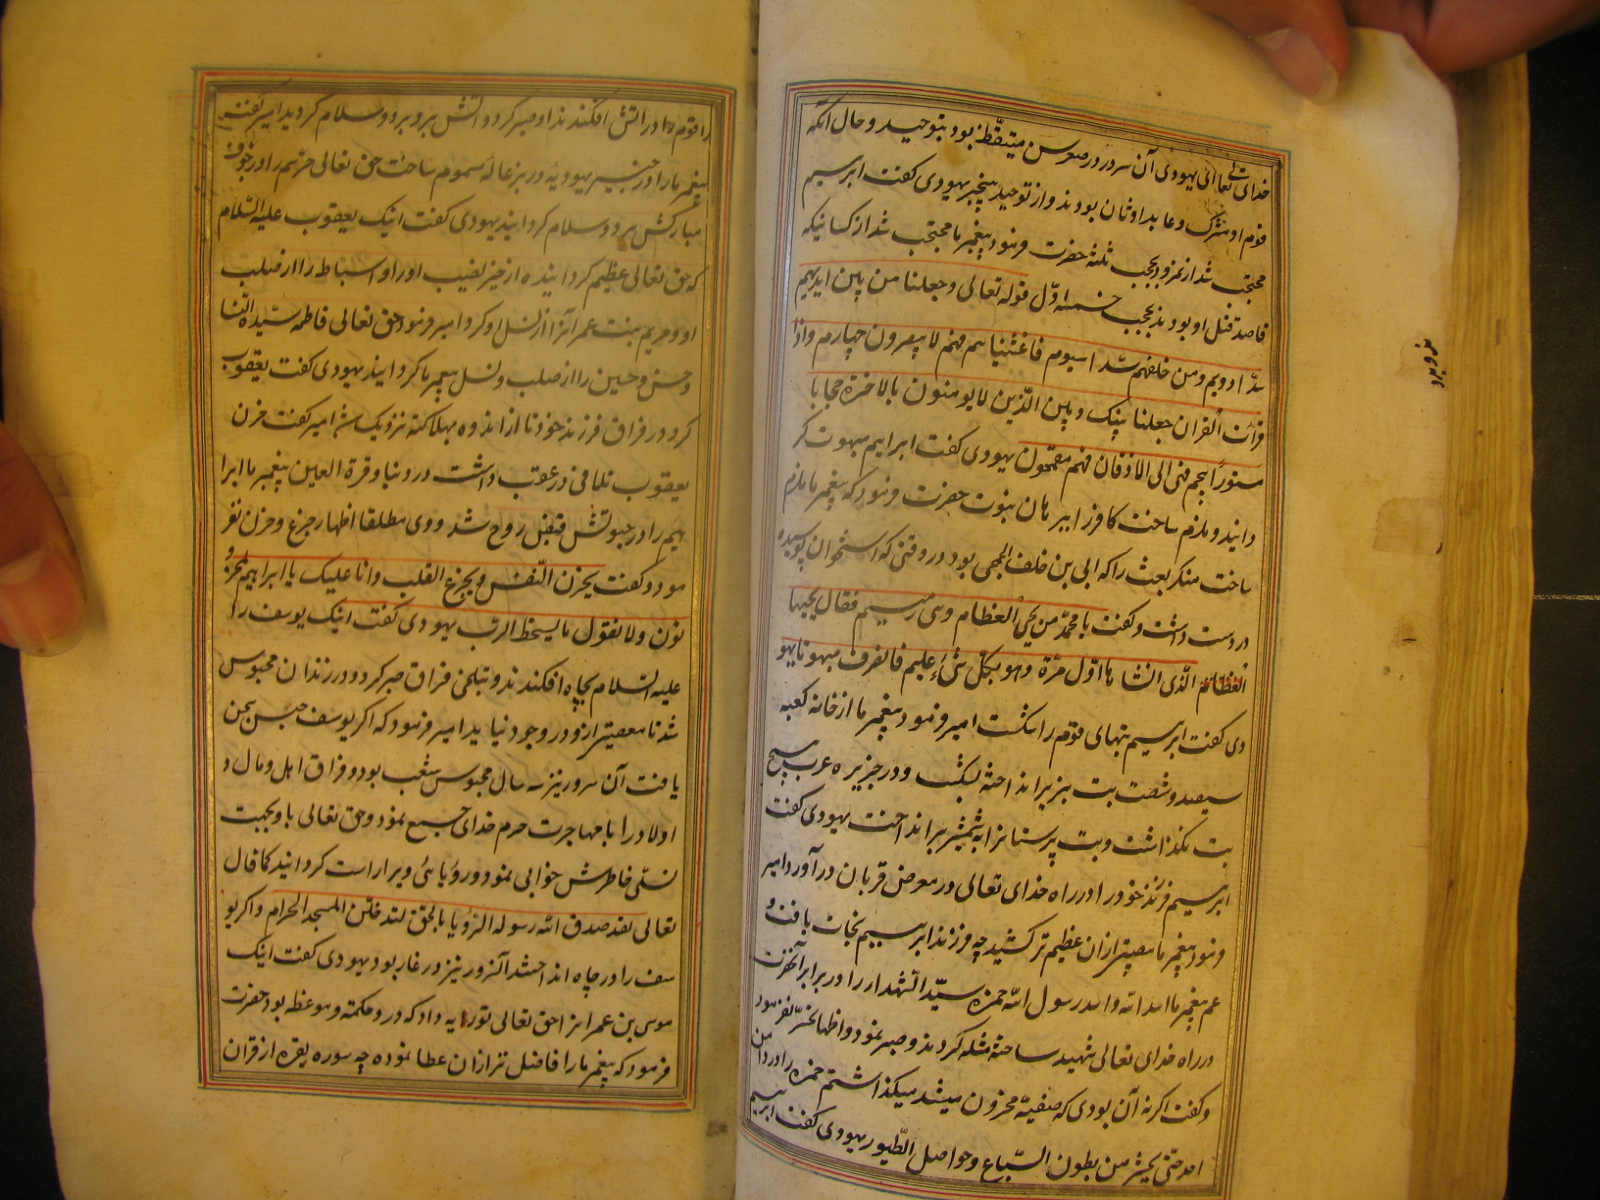 خدای تعالی یهودی آن سرور در صغر سن متیقظ بود بتوحید و حال آنکه
قوم او مشرک و عابد اوثان بودند و از توحید بیخبر یهودی کفت ابرهیم
محتجب شد از نمرود بحجب ثلثه حضرت فرمود پیغمبر ما محتجب شد از کسانیکه
قاصد قتل او بودند بحجب خمسه اول قوله تعالی وجعلنا من بین ایدیهم
سدّا دویم ومن خلفهم سدا سیوم فاغشیناهم فهم لا یبصرون چهارم واذا
قرأت القرآن جعلنا بینک وبین الذین لا یومنون بالاخرة حجابا
مستورا پنجم فهی الی الاذقان فهم مقمحون یهودی کفت ابراهیم مبهوت کر
دانید و ملزم ساخت کافر را ببرهان نبوت حضرت فرمود که پیغمبر ما ملزم
ساخت منکر بعث را که ابی بن خلف الجمحی بود در وقتی که استخوان پوسیده
در دست داشت و کفت یا محمد من یحیی العظام وهی رمیم فقال یحییها
الذی انشاها اول مرة وهو بکل شیء علیم فانصرف مبهوتا یهو
دی کفت ابرهیم بتهای قوم را شکست امیر فرمود پیغمبر ما از خانه کعبه
سیصد و شصت بت بزیر انداخته بشکست و در جزیره عرب هیچ
بت نکذاشت و بت پرستانرا بشمشیر برانداخت یهودی کفت
ابرهیم فرزند خود را در راه خدای تعالی در معرض قربان درآورد امیر
فرمود پیغمبر ما مصیبتی ازان عظیم تر کشید چه فرزند ابرهیم نجات یافت و
عم پیغمبر ما اسد الله واسد رسول الله حمزه سید الشهدا را در برابر آنحضرت
در راه خدای تعالی شهید ساخته مثله کردند و صبر نمود و اظهار تحسر نفرمود
و کفت اکر نه آن بودی که صفیه محزون میشد میکذاشتم حمزه را در دامن
احد حتی یحشر من بطون السباع وحواصل الطیور یهودی کفت ابرهیم
را قوم او در اتش افکندند او صبر کرد و اتش برو برد و سلام کردید امیر کفت
پیغمبر ما را در خیبر یهودیه در بزغاله مسموم ساخت حق تعالی حر سم را در جوف
مبارکش برد و سلام کردانید یهودی کفت اینک یعقوب علیه السلام
که حق تعالی عظیم کردانیده از خیر نصیب او را و اسباط را از صلب
او و مریم بنت عمرانرا از نسل او کرد امیر فرمود حق تعالی فاطمه سیدة النسا
و حسن و حسین را از صلب و نسل پیغمبر ما کردانید یهودی کفت یعقوب
کرد در فراق فرزند خود تا از اندوه بهلاکت نزدیک شد امیر کفت حزن
یعقوب تلافی در عقب داشت در دنیا و قرة العین پیغمبر ما ابرا
هیم را در حیوتش قبض روح شد و وی مطلقا اظهار جزع و حزن نفر
مود و کفت یحزن النفس ویجزع القلب وانا علیک یا ابراهیم لمحزو
نون ولا نقول ما یسخط الرب یهودی کفت اینک یوسف را
علیه السلام بچاه افکندند و بتلخی فراق صبر کرد و در زندان محبوس
شد تا معصیتی ازو در وجود نیاید امیر فرمود که اکر یوسف حبس سجن
یافت آن سرور نیز سه سال محبوس شعب بود و فراق اهل و مال و
اولاد را با مهاجرت حرم خدای جمع نمود و حق تعالی باو بجهت
تسلی خاطرش خوابی نمود و رویائی ویرا راست کردانید کما قال
تعالی لقد صدق الله رسوله الرؤیا بالحق لتدخلن المسجد الحرام و اکر یو
سف را در چاه انداختند آنسرور نیز در غار بود یهودی کفت اینک
موسی بن عمرانرا حق تعالی توریه داد که درو حکمة و موعظه بود حضرت
فرمود که پیغمبر ما را فاضل تر ازان عطا نموده چه سوره بقره از قران